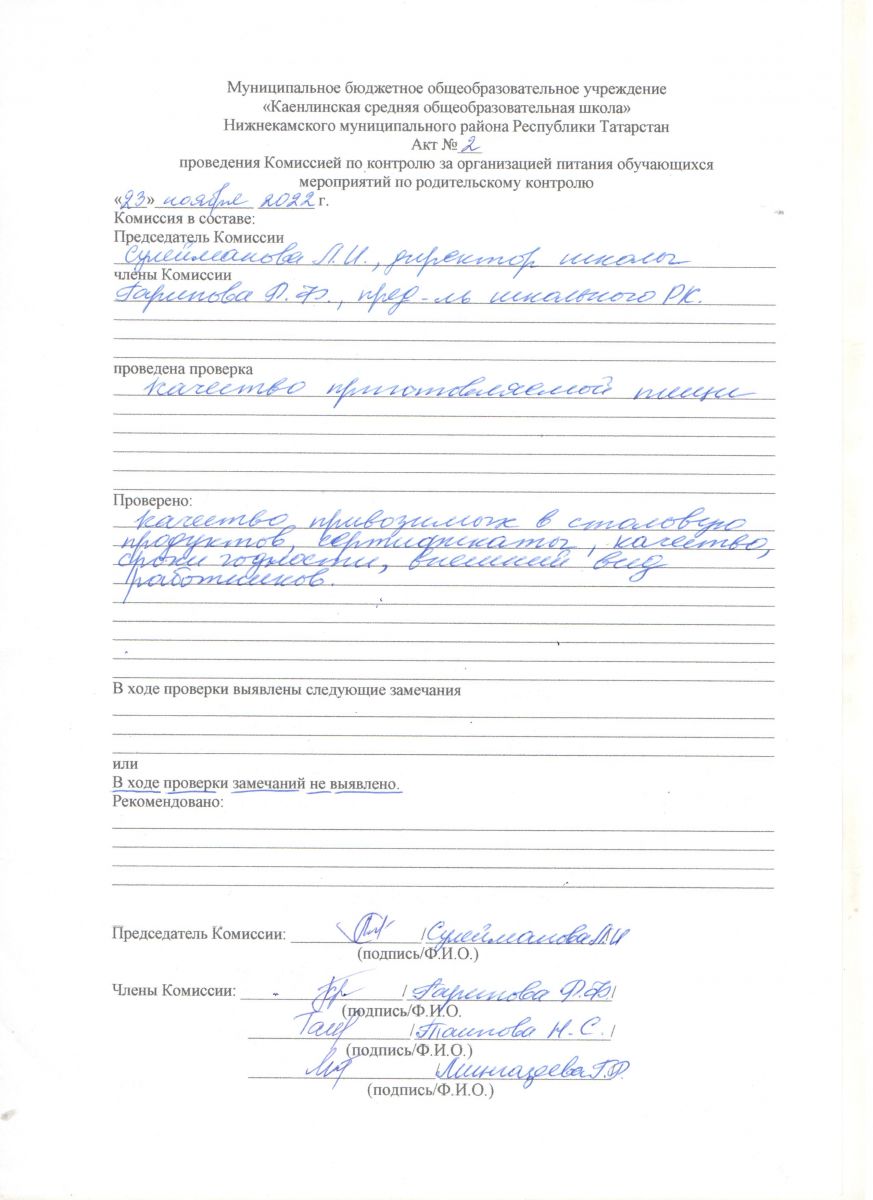 Муниципальное бюджетное общеобразовательное учреждение
«Каенлинская средняя общеобразовательная школа»
Нижнекамского муниципального района Республики Татарстан
Акт № 2
проведения Комиссией по контролю за организацией питания обучающихся
мероприятий по родительскому контролю
«23» ноября 2022 г.
Комиссия в составе:
Председатель Комиссии
Сулейманова Л.И., директор школы
члены Комиссии
Гарипова Ф.Ф., пред-ль школьного РК.
проведена проверка
качество приготовляемой пищи
Проверено:
качество привозимых в столовую
продуктов, сертификаты, качество,
сроки годности, внешний вид
работников.
В ходе проверки выявлены следующие замечания
или
В ходе проверки замечаний не выявлено.
Рекомендовано:
Председатель Комиссии: / Сулейманова Л.И
(подпись/Ф.И.О.)
Члены Комиссии: / Гарипова Ф.Ф. /
(подпись/Ф.И.О.
/ Таипова Н.С. /
(подпись/Ф.И.О.)
/ Мингазеева Г.Ф.
(подпись/Ф.И.О.)